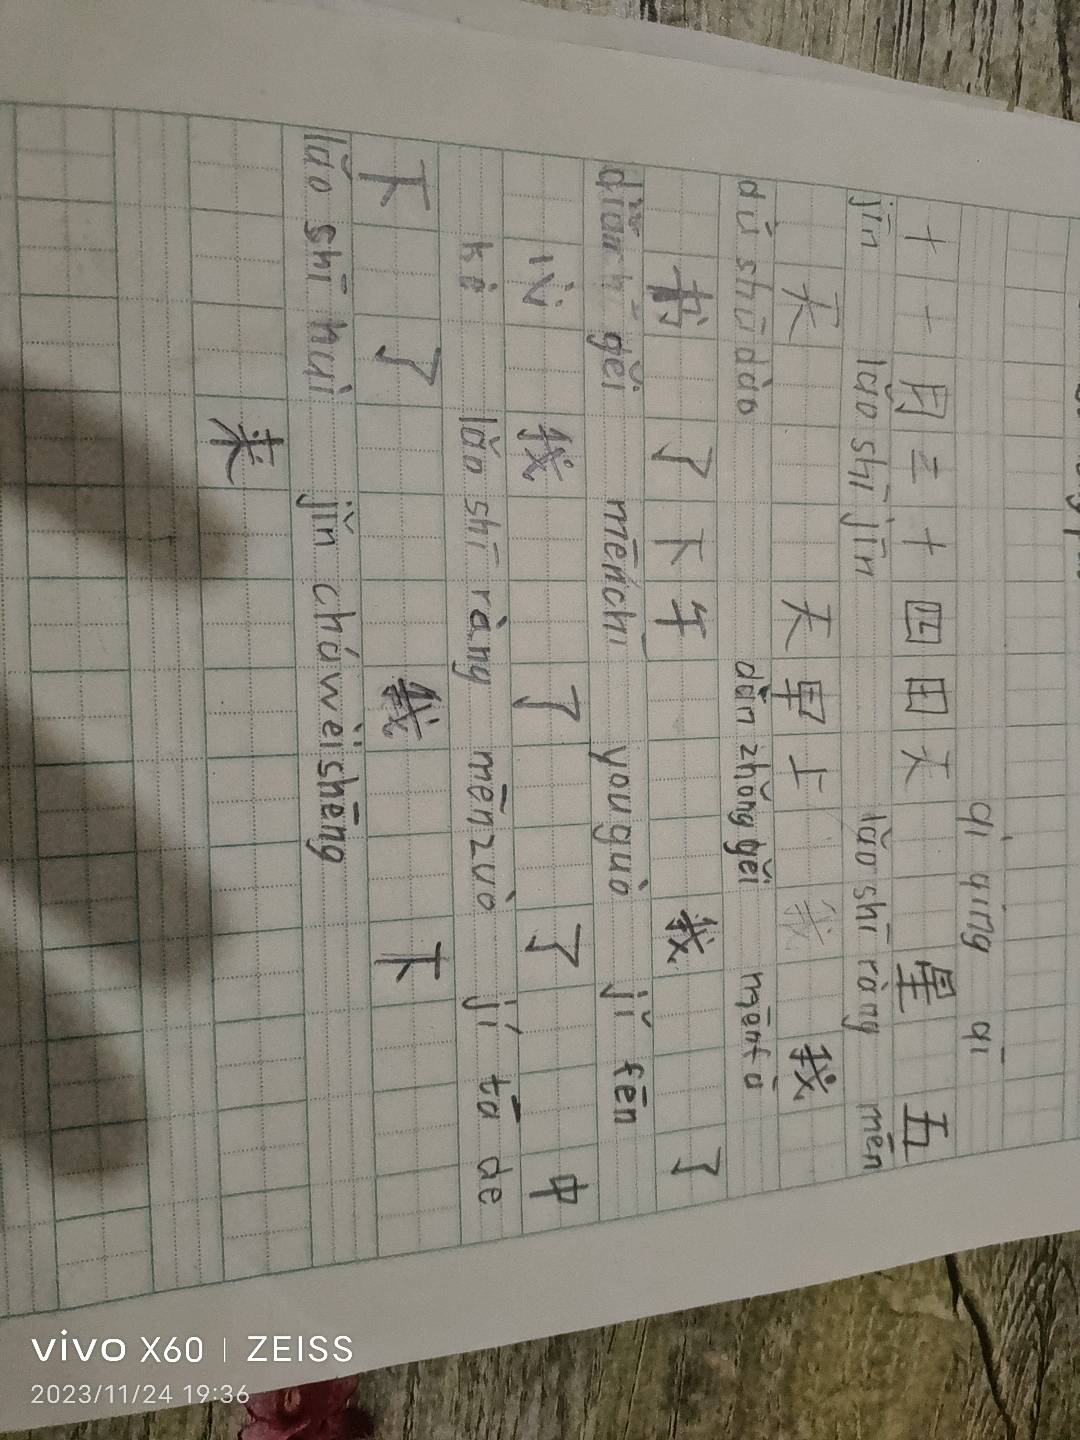 qí qíng qī
十一月二十四日天 星 五
jīn lǎo shī jīn lǎo shī ràng mēn
天 天早上 我 我
dú shū dào dān zhǒng gěi mēn fā
书 了下午 我 了
diǎn gěi mēn chī yǒu guò jǐ fēn
心 我 了 了 中
kè lǎo shī ràng mēn zuò jí tā de
下 了 我 下
lǎo shī huí jiǎn chá wèi shēng
来
vivo X60 | ZEISS
2023/11/24 19:36